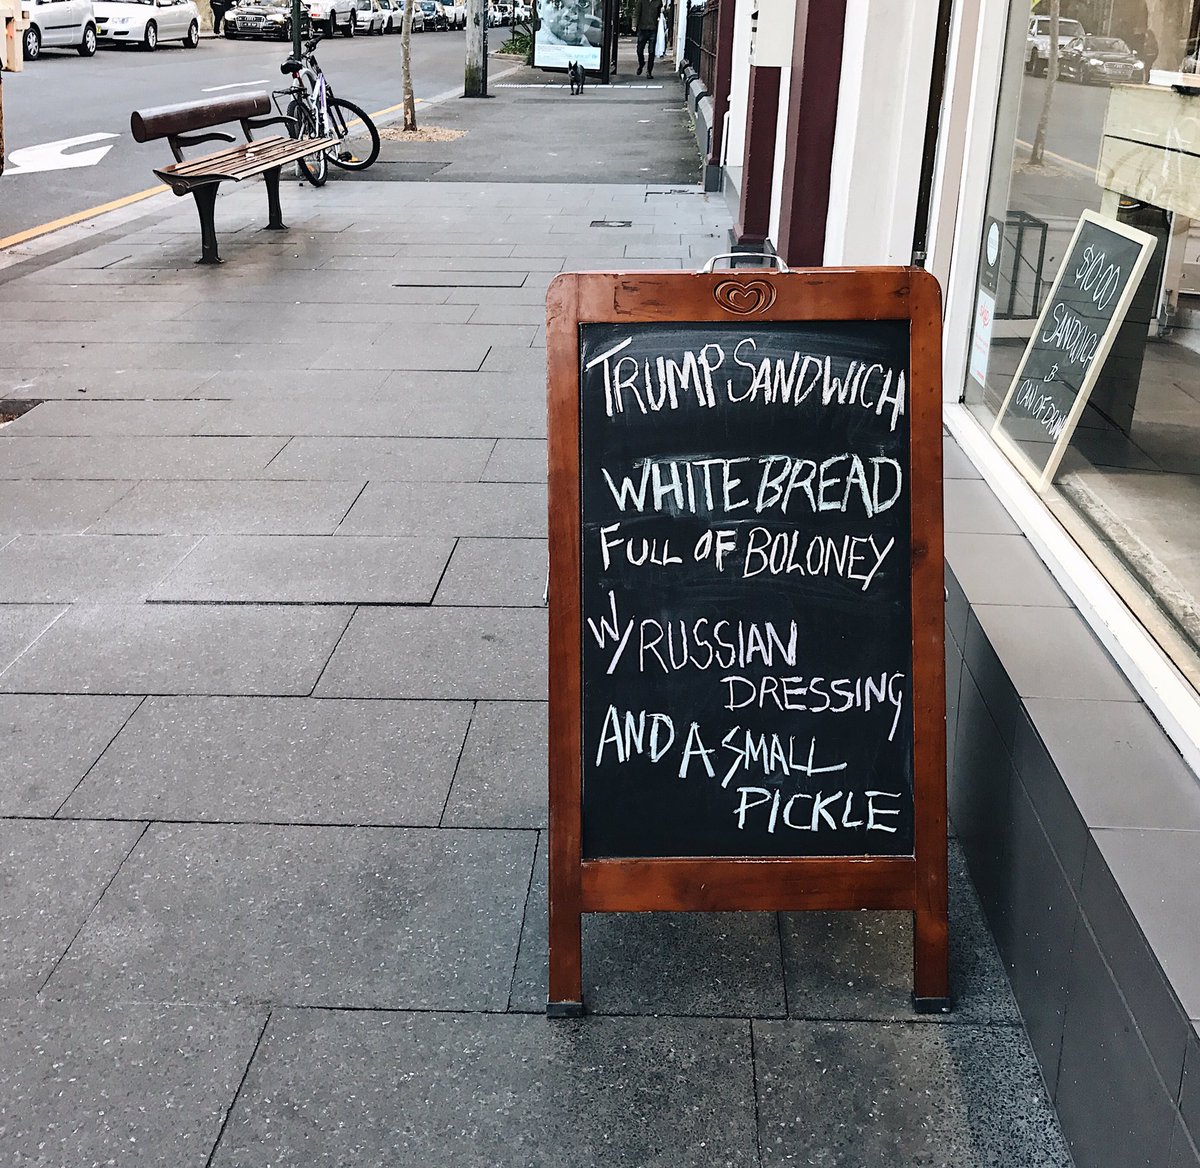 TRUMP SANDWICH
WHITE BREAD
FULL OF BOLONEY
W/ RUSSIAN
DRESSING
AND A SMALL
PICKLE
$10.00
SANDWICH
&
CAN OF DRINK